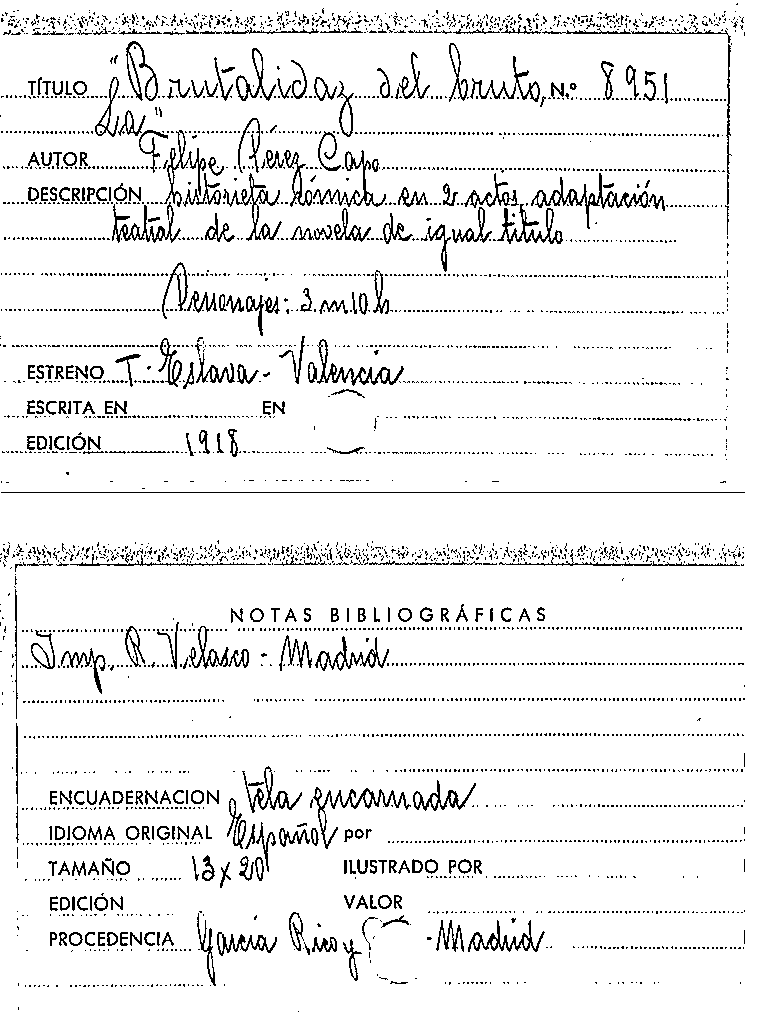 TÍTULO "Brutalidaz del bruto, N.º 8951
La"
AUTOR Felipe Pérez Capo
DESCRIPCIÓN historieta cómica en 2 actos, adaptación
teatral de la novela de igual titulo
Personajes: 3 m 10 h
ESTRENO T. Eslava - Valencia
ESCRITA EN EN
EDICIÓN 1918
NOTAS BIBLIOGRÁFICAS
Imp. R. Velasco - Madrid
ENCUADERNACION tela encarnada
IDIOMA ORIGINAL Español por
TAMAÑO 13 x 20 ILUSTRADO POR
EDICIÓN VALOR
PROCEDENCIA García Rico y - Madrid